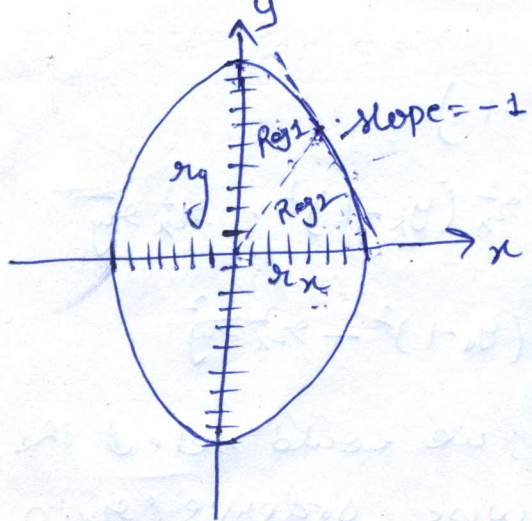 y
Reg1
slope = -1
ry
Reg2
x
rx